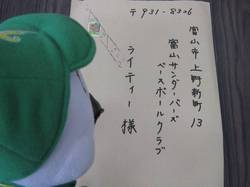 〒931-8326
富山市上野新町13
富山サンダーバーズ
ベースボールクラブ
ライティー様